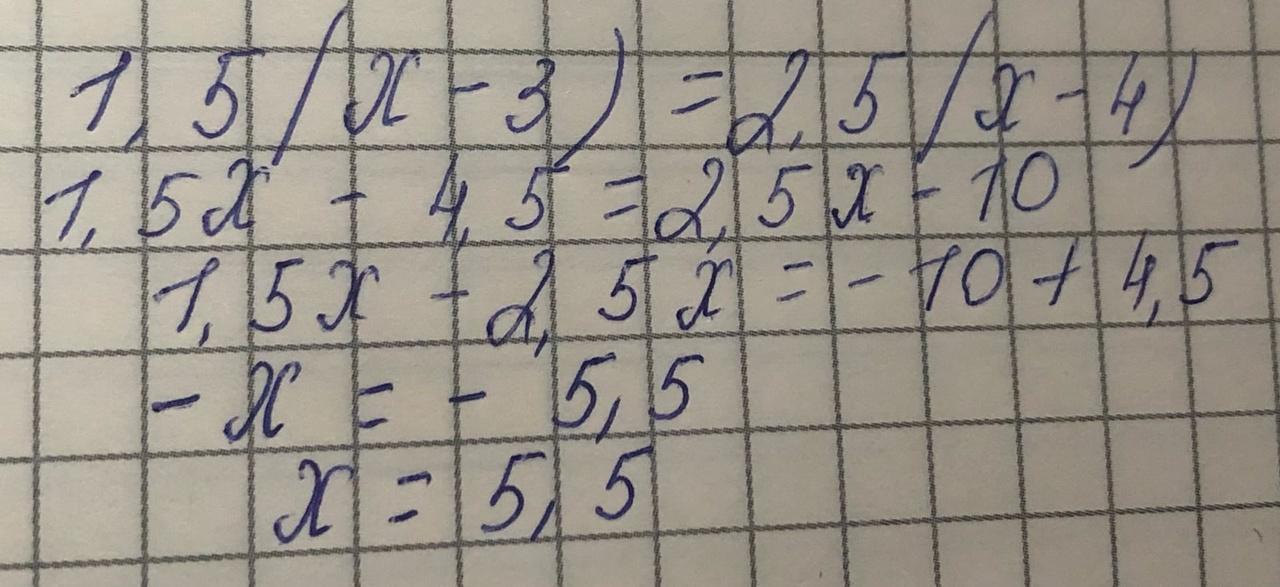 1,5(x-3)=2,5(x-4)
1,5x-4,5=2,5x-10
1,5x-2,5x=-10+4,5
-x=-5,5
x=5,5